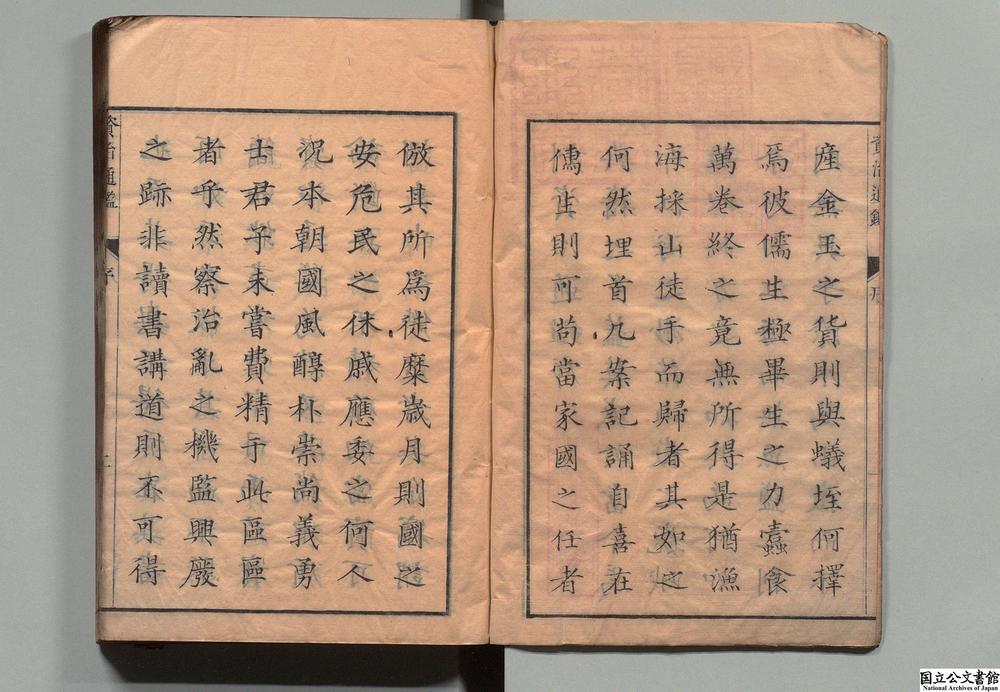 資治通鑑
序
産金玉之貨則與蟻垤何擇
焉彼儒生極畢生之力蠹食
萬卷終之竟無所得是猶漁
海採山徒手而歸者其如之
何然埋首几案記誦自喜在
儒生則可苟當家國之任者
倣其所爲徒糜歳月則國之
安危民之休戚應委之何人
況本朝國風醇朴崇尚義勇
士君子未嘗費精于此區區
者乎然察治亂之機監興廢
之跡非讀書講道則不可得
資治通鑑
序
二
国立公文書館
National Archives of Japan